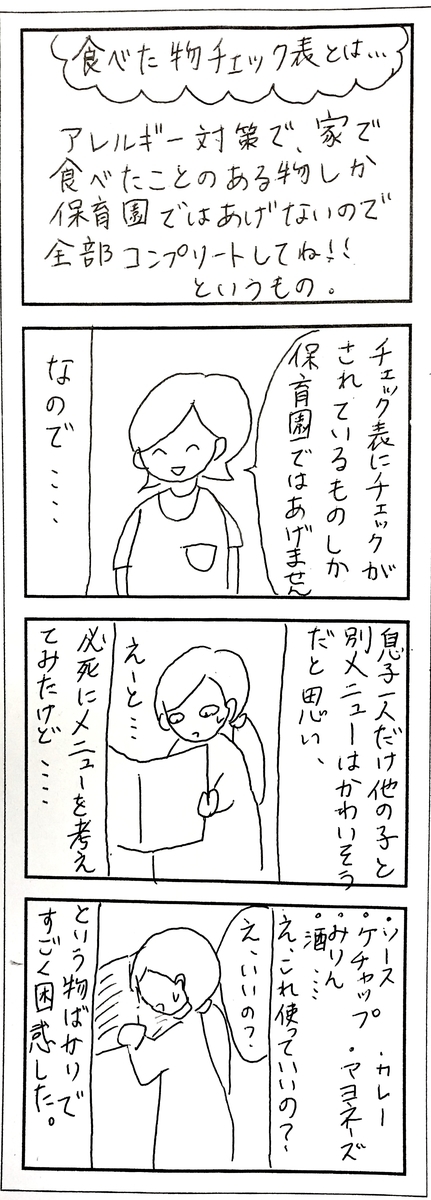 食べた物チェック表とは…
アレルギー対策で、家で
食べたことのある物しか
保育園ではあげないので
全部コンプリートしてね!!
というもの。
チェック表にチェックが
されているものしか
保育園ではあげません
なので‥‥
息子一人だけ他の子と
別メニューはかわいそう
だと思い、
えーと…
必死にメニューを考え
てみたけど‥‥
・ソース ・カレー
・ケチャップ ・マヨネーズ
・みりん
・酒‥‥
え、これ使っていいの?
え、いいの?
という物ばかりで
すごく困惑した。